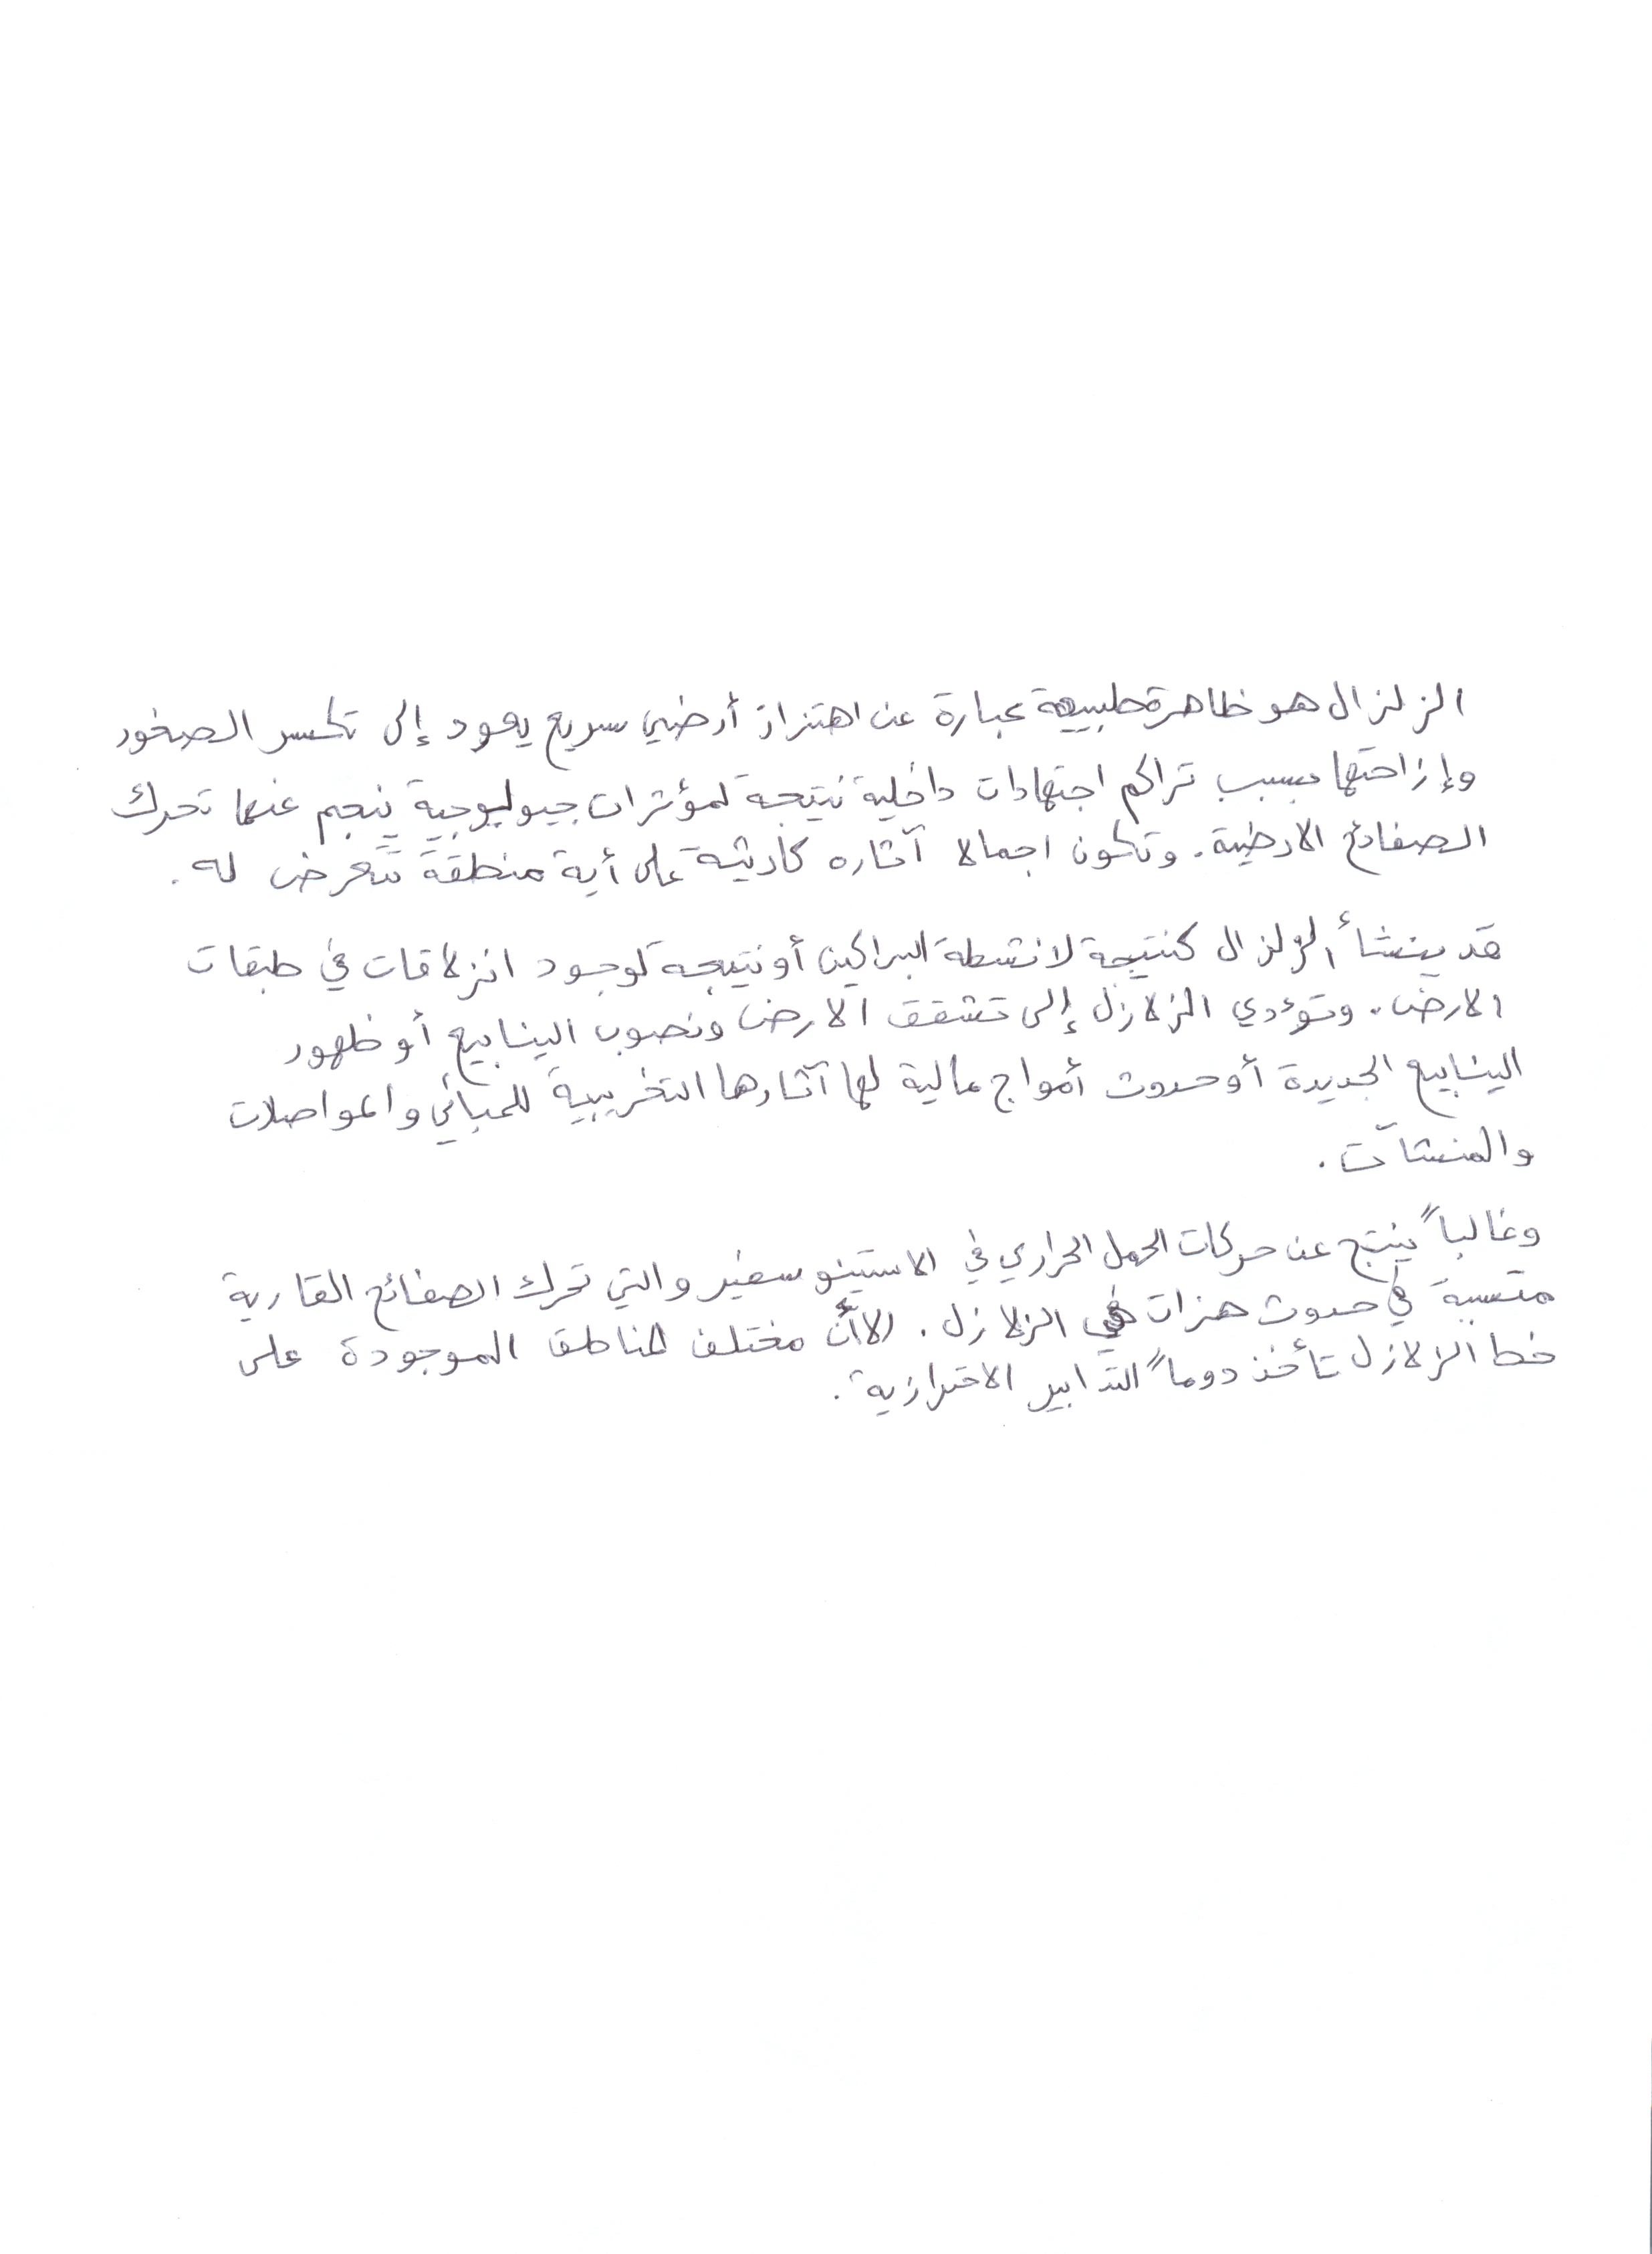 الزلزال هو ظاهرة طبيعة عبارة عن اهتزاز أرضي سريع يعود إلى تكسر الصخور
وإزاحتها بسبب تراكم اجتهادات داخلية نتيجة لمؤثرات جيولوجية ينجم عنها تحرك
الصفائح الارضية. وتكون اجمالا آثاره كارثية على أية منطقة تتعرض له.
قد ينشأ الزلزال كنتيجة لانشطة البراكين أو نتيجة لوجود انزلاقات في طبقات
الارض. وتؤدي الزلازل إلى تشقق الارض ونضوب الينابيع أو ظهور
الينابيع الجديدة أو حدوث أمواج عالية لها آثارها التخريبية للمباني والمواصلات
والمنشآت.
وغالباً ينتج عن حركات الحمل الحراري في الاستينوسفير والتي تحرك الصفائح القارية
متسببة في حدوث هزات هي الزلازل. الا أنّ مختلف المناطق الموجودة على
خط الزلازل تأخذ دوماً التدابير الاحترازية.